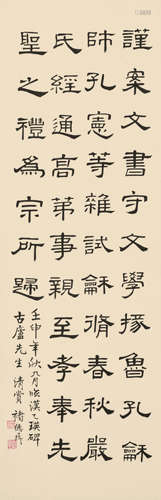 謹案文書守文學掾魯孔龢
師孔憲等雜試龢脩春秋嚴
氏經通高第事親至孝奉先
聖之禮為宗所歸
壬申年秋八月臨漢乙瑛碑
古盧先生清賞 褚德彝